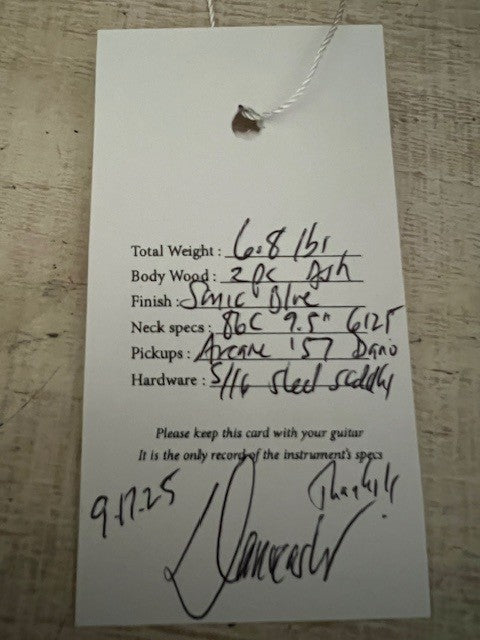 Total Weight : 6.8 lbs
Body Wood : 2 pc Ash
Finish : Sonic Blue
Neck specs : 86C 9.5" 6125
Pickups : Arcane '57 Dano
Hardware : 5/16 steel saddles
Please keep this card with your guitar
It is the only record of the instrument's specs
9-17-25 Thanks!!